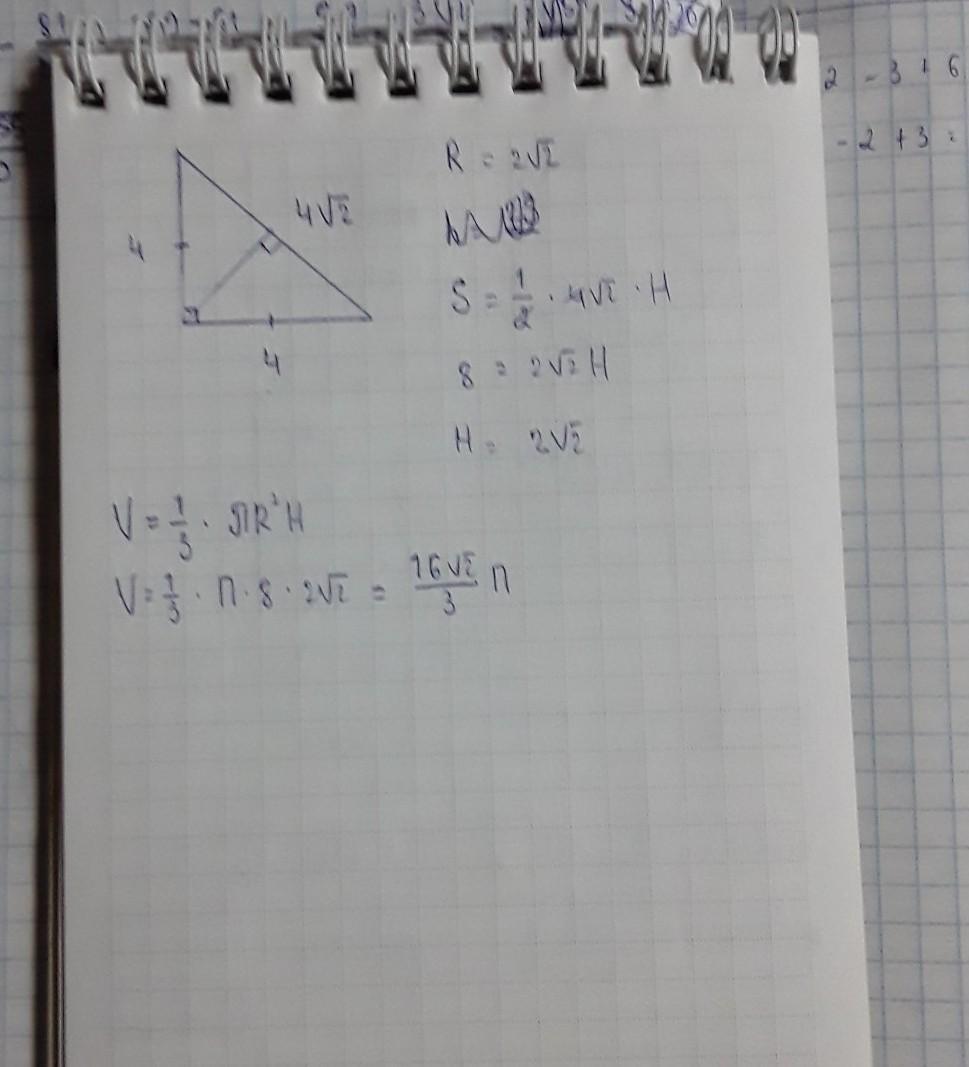 4√2
4
4
R = 2√2
S = 1/2 · 4√2 · H
8 = 2√2 H
H = 2√2
V = 1/3 · πR²H
V = 1/3 · П · 8 · 2√2 = 16√2/3 П
2 - 3 + 6
- 2 + 3 =